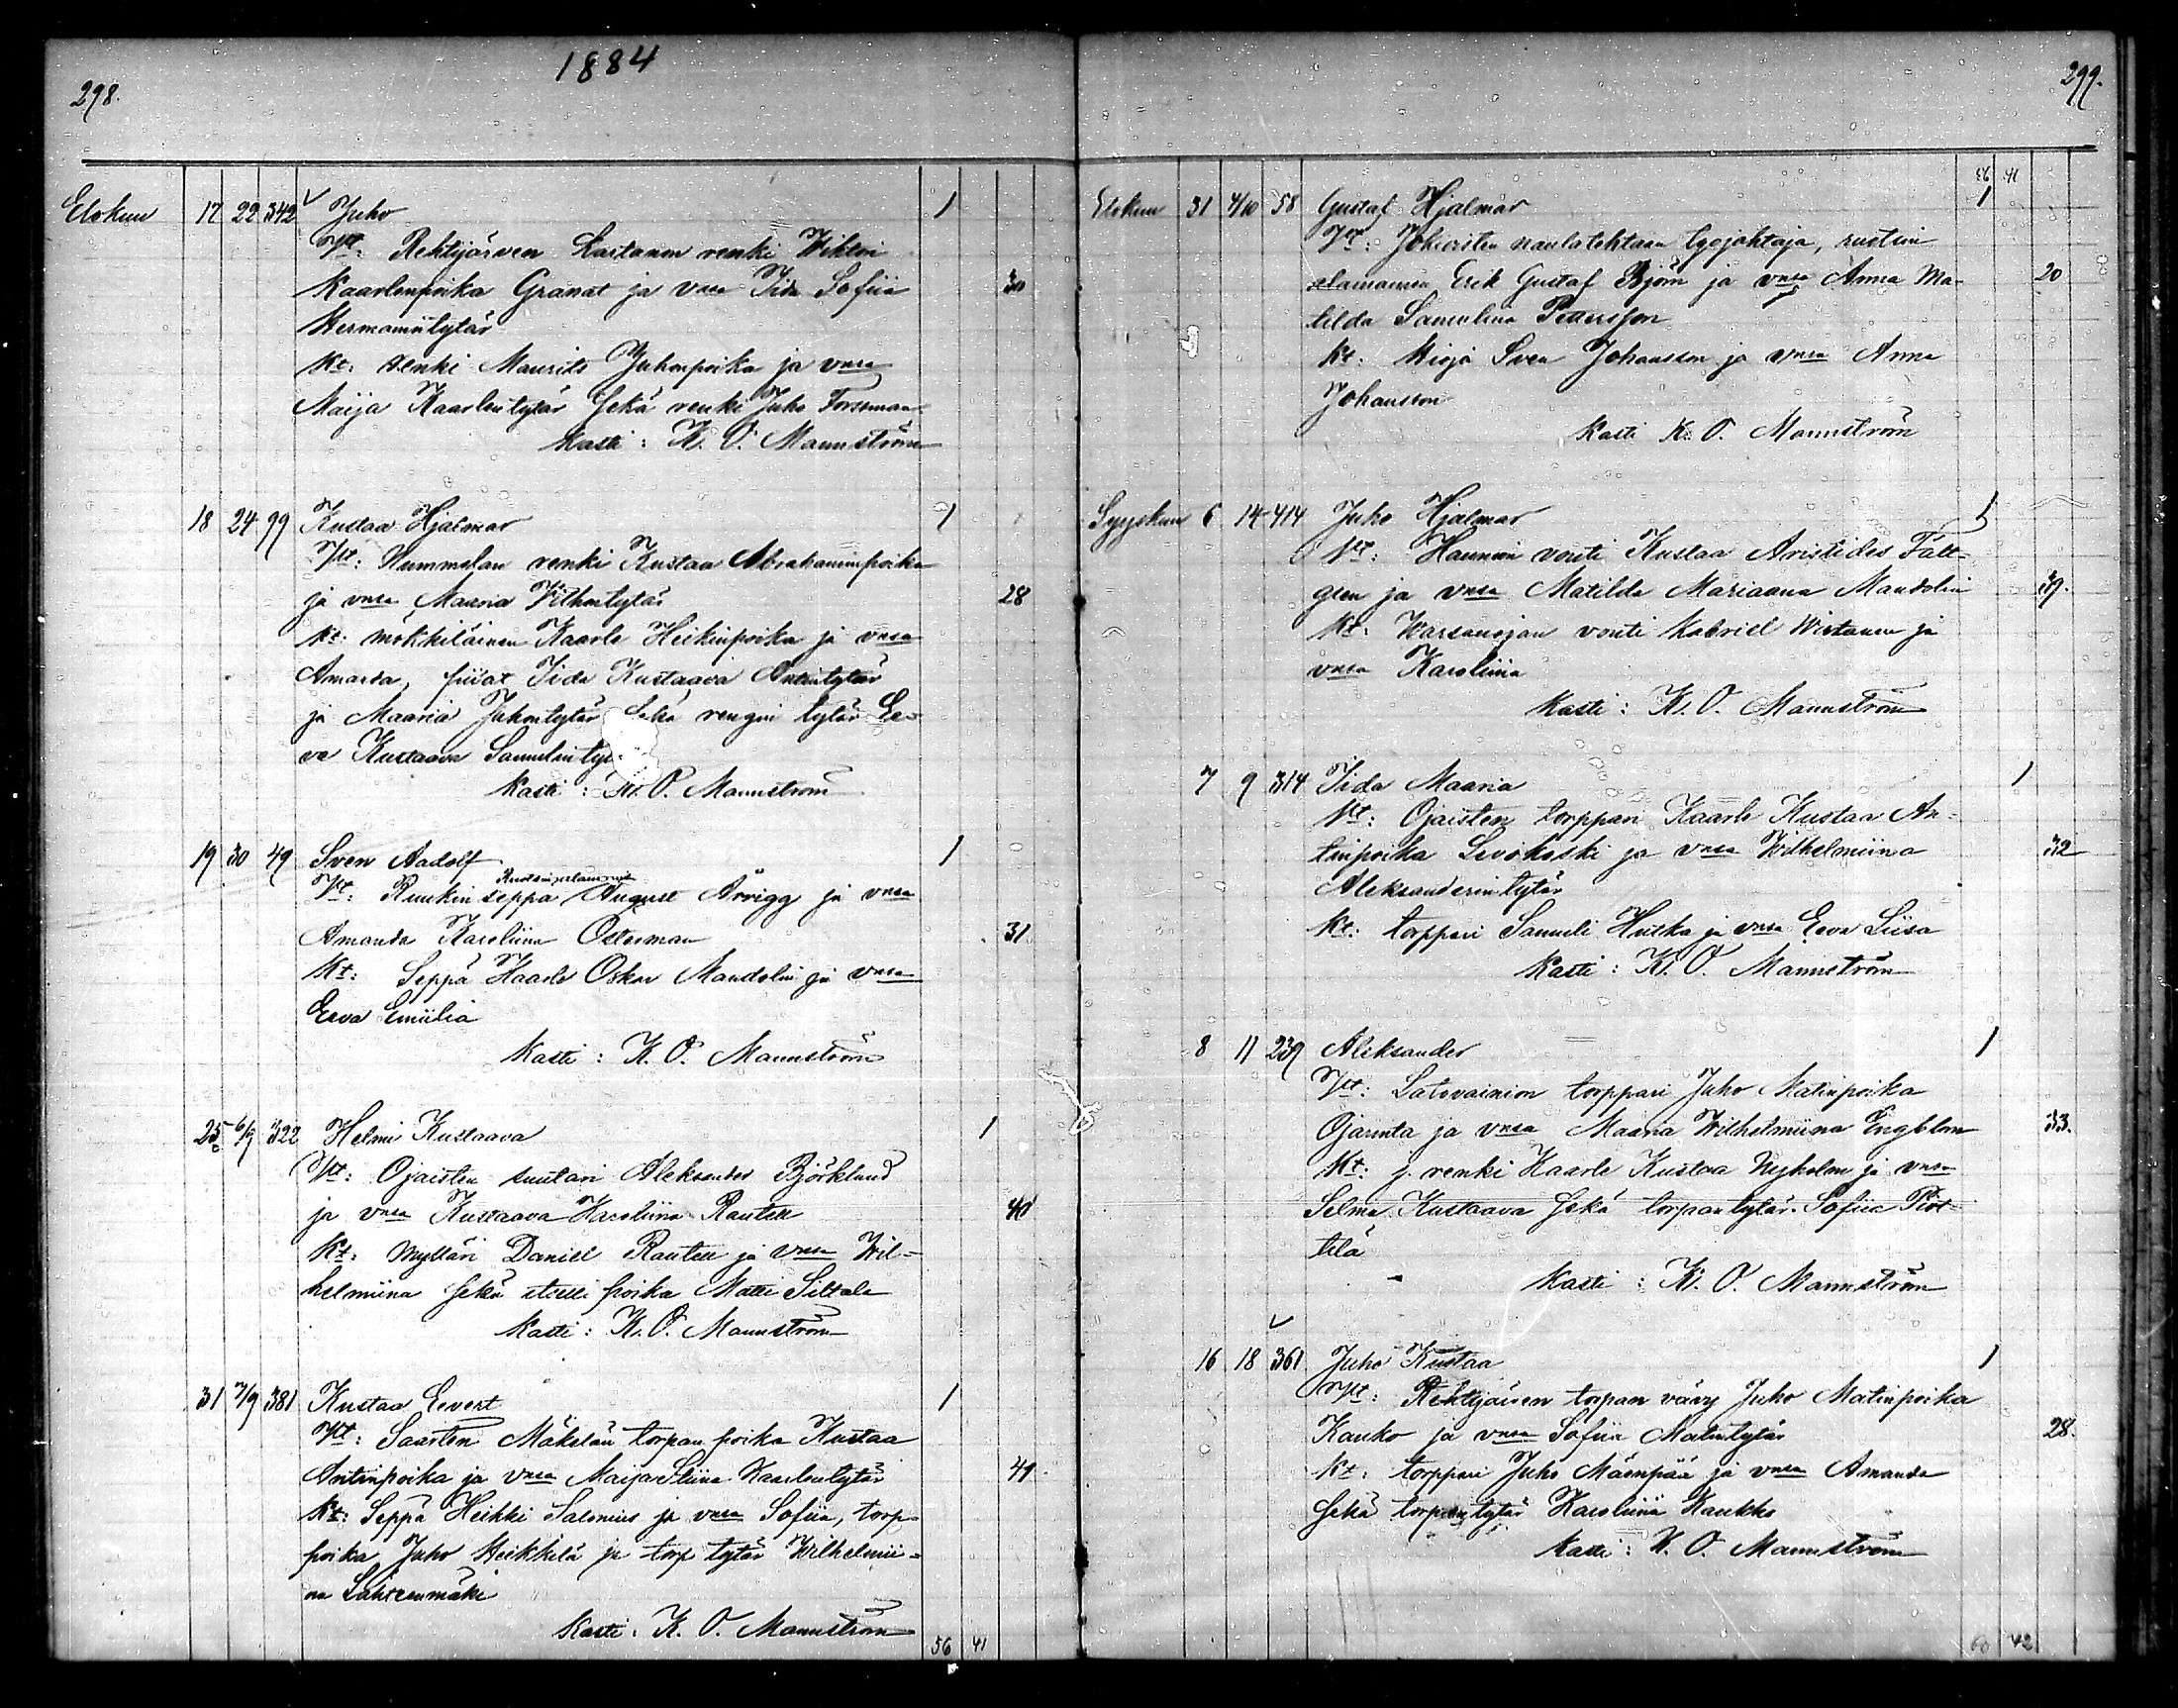 1884
298.
Elokuu 17 22 342 Juho 1
Vt: Rehtijärven Lastanen renki Wihtori
Kaarlenpoika Granat ja vmsa Iida Sofiia 30
Hermannintytär
Kt: renki Maurits Juhonpoika ja vmsa
Maija Kaarlentytär sekä renki Juho Forsman
Kasti: K. O. Mannström
18 24 99 Kustaa Hjalmar 1
Vt: Hummelan renki Kustaa Abrahaminpoika
ja vmsa Maria 28
Kt: mökkiläinen Kaarle Heikinpoika ja vmsa
Amanda, piiat Iida Kustaava Antintytär
ja Maaria Juhontytär sekä rengin tytär Ee-
va Kustaava Samulin
Kasti: K. O. Mannström
19 30 49 Sven Aadolf 1
Ruotsinalamainen
Vt: Ruukin seppä August Arvigg ja vmsa
Amanda Karoliina Österman 31
Kt: Seppä Kaarle Oskar Mandolin ja vmsa
Eeva Emiilia
Kasti: K. O. Mannström
25 6/9 322 Helmi Kustaava 1
Vt: Ojaisten suutari Aleksander Björklund
ja vmsa Kustaava Karoliina Rautell 40
Kt: Mylläri Daniel Rautell ja vmsa Wil-
helmiina sekä talli poika Matti Siltala
Kasti: K. O. Mannström
31 7/9 381 Kustaa Evert 1
Vt: Saarten Mäkelän torpan poika Kustaa
Antinpoika ja vmsa Maija Stiina Kaarlentytär 41
Kt: Seppä Heikki Salonius ja vmsa Sofiia, torp.
poika Juho Heikkilä ja torp tytär Wilhelmii-
na Lahteenmäki
Kasti: K. O. Mannström
56 41
299.
56 41
Elokuu 31 4/10 58 Gustaf Hjalmar 1
Vt: Jokioisten naulatehtaan työjohtaja, ruotsin
alamainen Erik Gustaf Björn ja vmsa Anna Ma- 20
tilda Samulina Pettersson
Kt: Hioja Sven Johansson ja vmsa Anna
Johansson
Kasti K. O. Mannström
Syyskuu 6 14 414 Juho Hjalmar 1
Vt: Haunion vouti Kustaa Aristides Fält-
gren ja vmsa Matilda Mariaana Mandolin 39.
Kt: Warsanojan vouti Kabriel Wirtanen ja
vmsa Karoliina
Kasti: K. O. Mannström
7 9 314 Iida Maaria 1
Vt: Ojaisten torppari Kaarle Kustaa An-
tinpoika Levokoski ja vmsa Wilhelmiina 32
Aleksanderintytär
Kt: torppari Samuli Hutka ja vmsa Eeva Liisa
Kasti: K. O. Mannström
8 11 239 Aleksander 1
Vt: Latovainion torppari Juho Matinpoika
Ojaranta ja vmsa Maaria Wilhelmiina Engblom 33.
Kt: j. renki Kaarle Kustaa Nyholm ja vmsa
Selma Kustaava sekä torpantytär Sofiia Pöt-
tilä
Kasti: K. O. Mannström
16 18 361 Juho Kustaa 1
Vt: Rehtijärven torpan vävy Juho Matinpoika
Kauko ja vmsa Sofiia Matintytär 28.
Kt: torppari Juho Mäenpää ja vmsa Amanda
sekä torpantytär Karoliina Kaukko
Kasti: K. O. Mannström
60 42